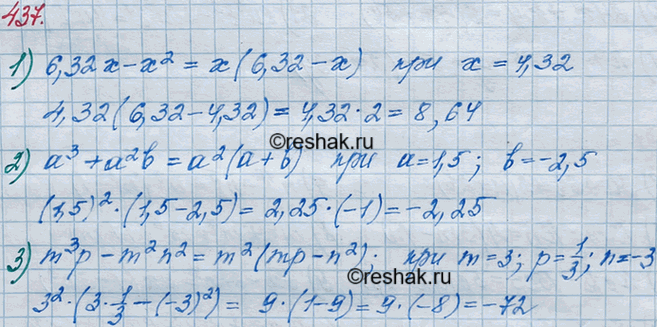 437.
1) 6,32x - x² = x(6,32 - x) при x = 4,32
4,32(6,32 - 4,32) = 4,32·2 = 8,64
©reshak.ru
2) a³ + a²b = a²(a + b) при a = 1,5; b = -2,5
(1,5)²·(1,5 - 2,5) = 2,25·(-1) = -2,25
3) m³p - m²n² = m²(mp - n²). при m = 3; p = 1/3; n = -3
©reshak.ru
3²·(3·1/3 - (-3)²) = 9·(1 - 9) = 9·(-8) = -72